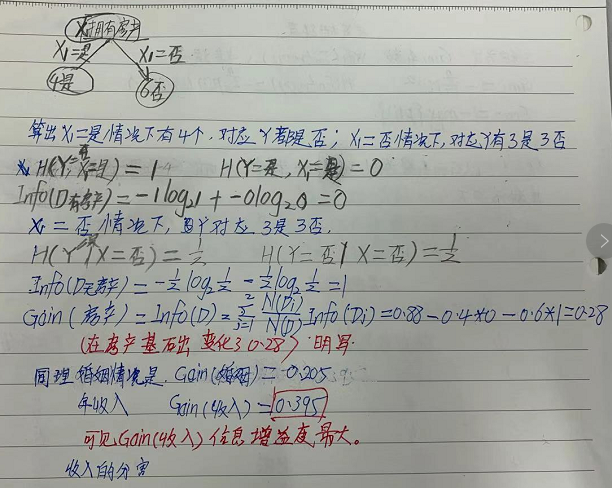 X₁拥有房产
X₁=是 X₁=否
4是 6否
算出X₁=是情况下有4个,对应Y都是否;X₁=否情况下,对应Y有3是3否
H(Y=否,X₁=是)=1 H(Y=是,X₁=是)=0
Info(D有房产)=-1log₂1+-0log₂0=0
X₁=否情况下,Y对应3是3否.
H(Y=是|X=否)=1/2 H(Y=否|X=否)=1/2
Info(D无房产)=-1/2log₂1/2-1/2log₂1/2=1
Gain(房产)=Info(D)=Σ²ᵢ₌₁ N(Di)/N(D) Info(Di)=0.88-0.4*0-0.6*1=0.28
(在房产基础出变化了0.28)明
同理婚姻情况是. Gain(婚姻)=0.205
年收入 Gain(收入)=0.395
可见Gain(收入)信息增益度最大。
收入的分